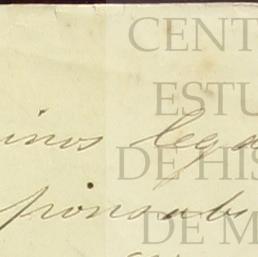 CENT
ESTU
inos lega
DE HIS
ponsab
DE M